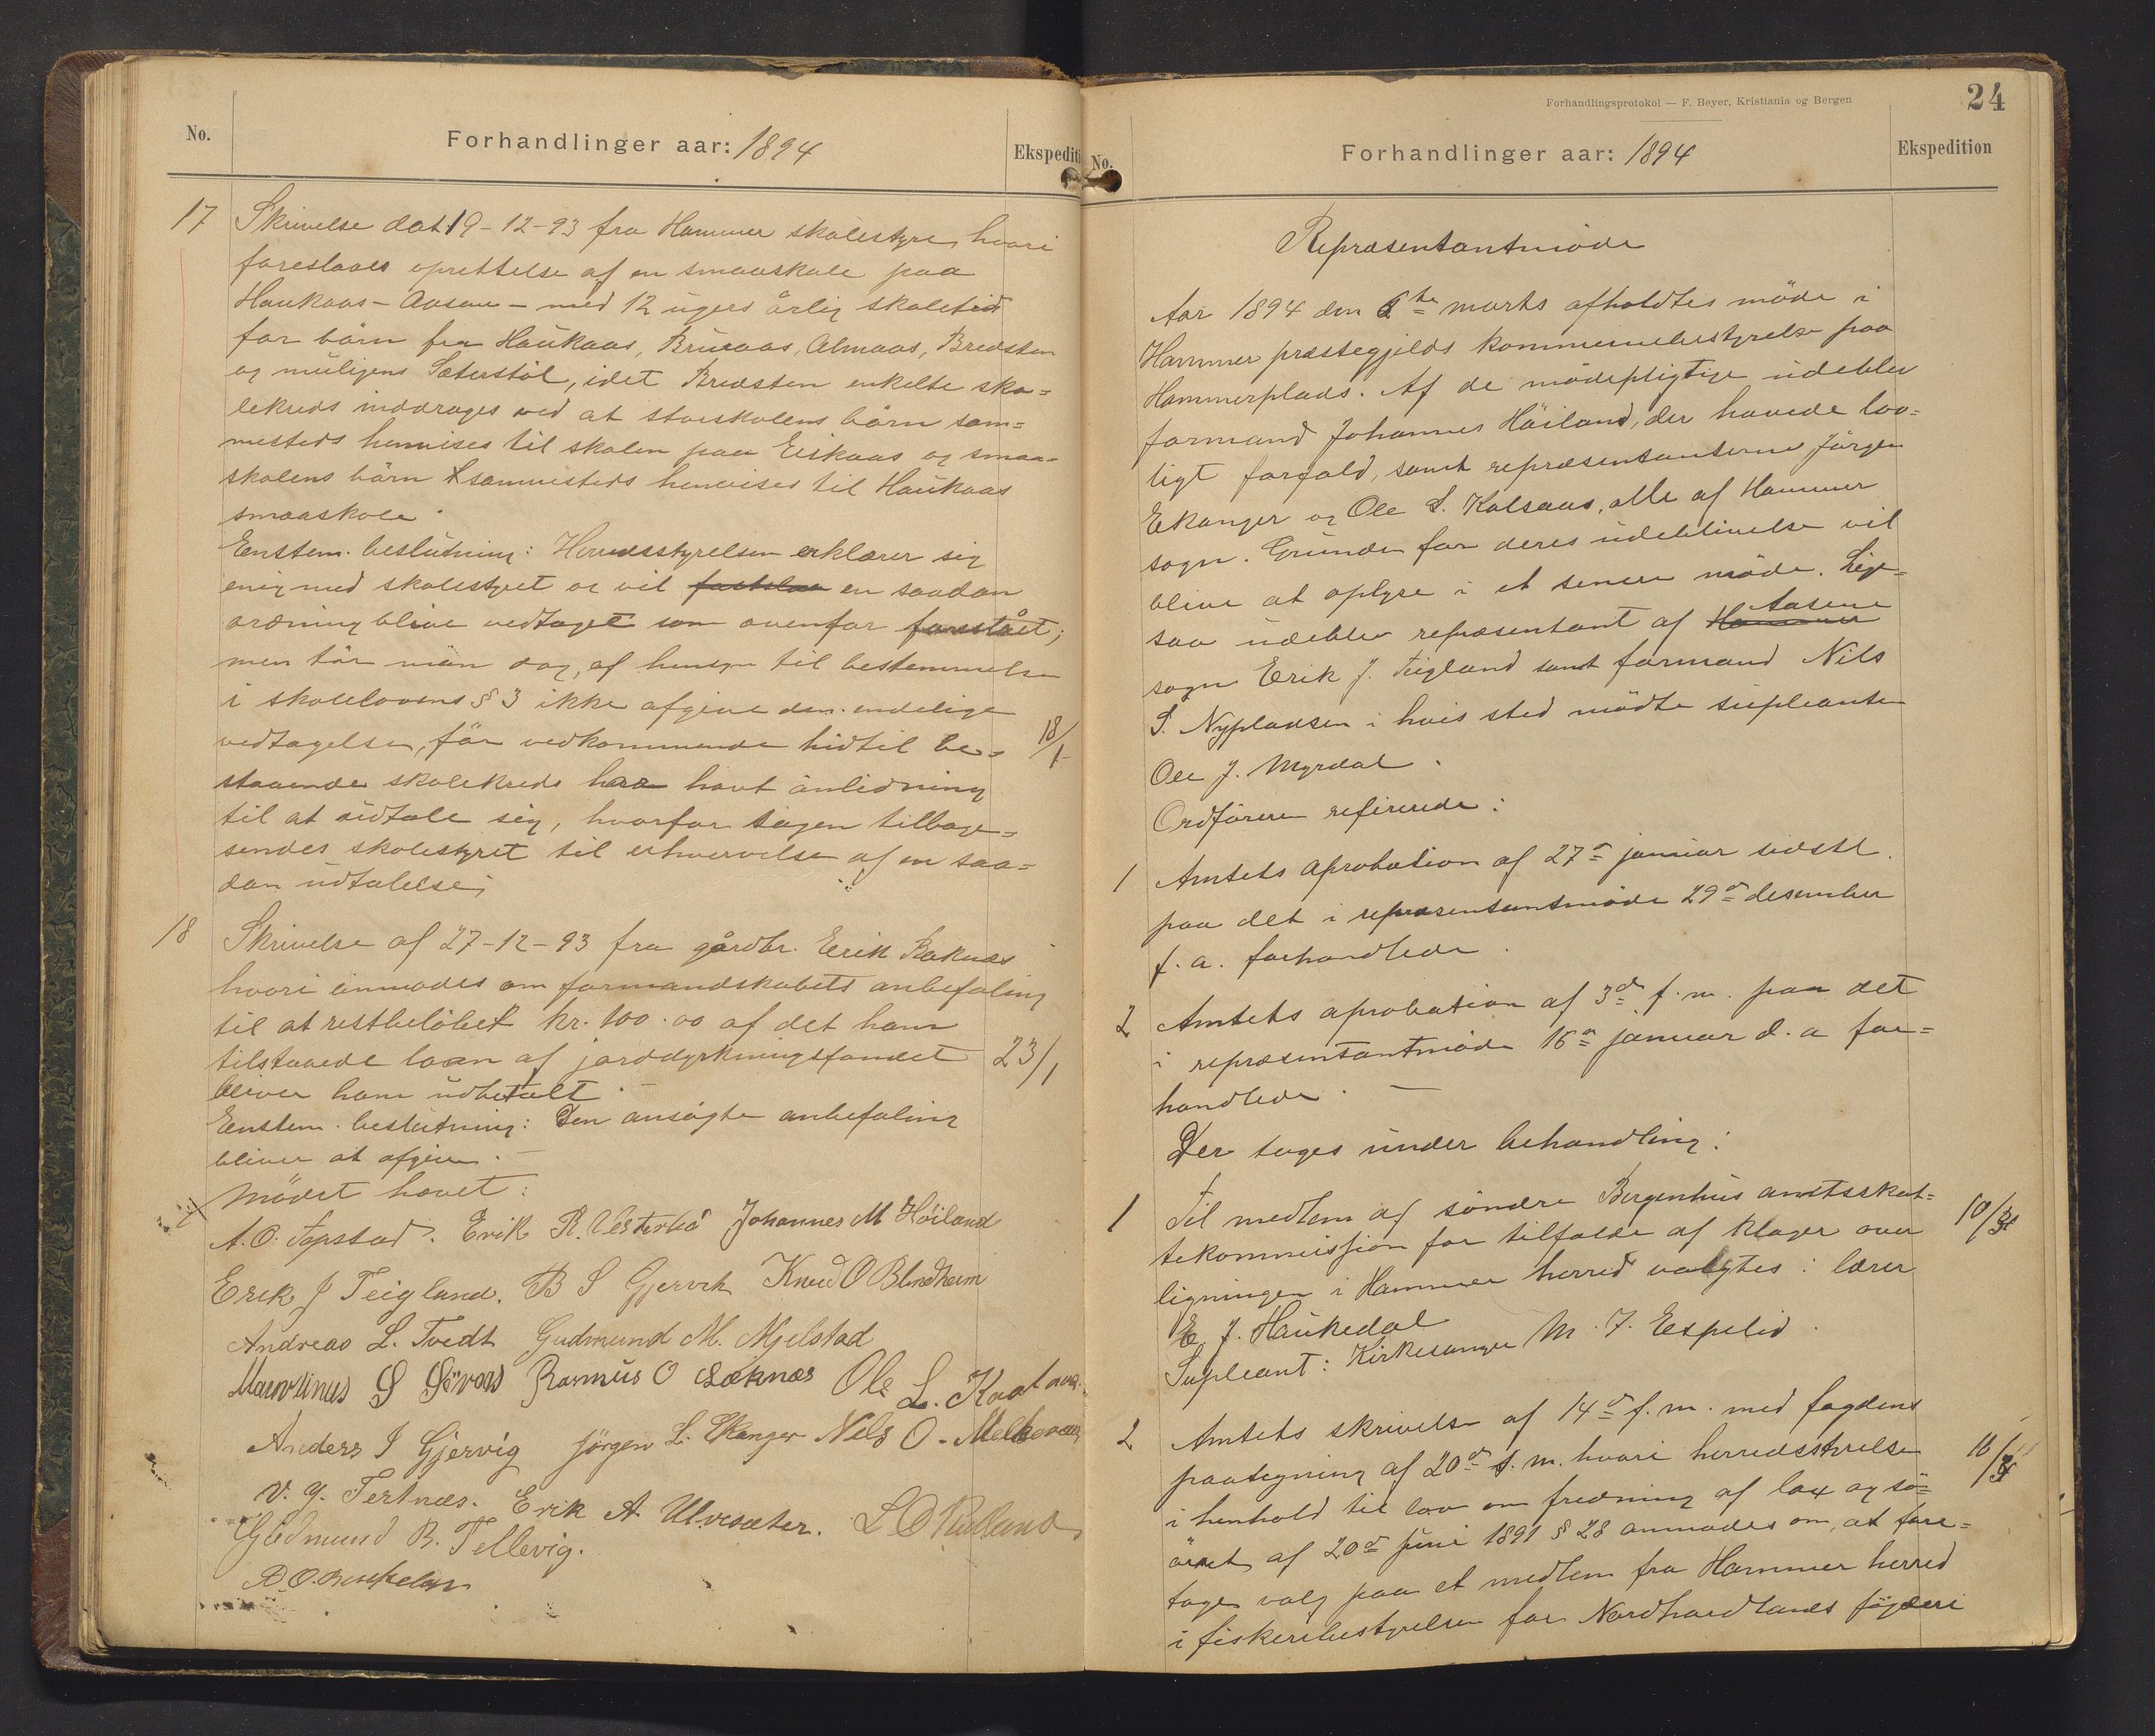 No.
Forhandlinger aar: 1894
Ekspediti
17 Skrivelse dat. 19-12-93 fra Hammer skolestyre, hvori
foreslaaes oprettelse af en smaaskole paa
Haukaas - Aasane - med 12 ugers årlig skoletid
for börn fra Haukaas, Bruraas, Almaas, Bredsten
og muligens Sæterstöl, idet Bredsten enkelte sko=
lekreds inddrages ved at storskolens börn sam=
mesteds henvises til skolen paa Eikaas og smaa=
skolens börn sammesteds henvises til Haukaas
smaaskole.
Enstem. beslutning: Herredsstyrelsen erklærer sig
enig med skolestyret og vil en saadan
ordning blive vedtaget som ovenfor forestået;
men tör man dog, af hensyn til bestemmelsen
i skolelovens § 3 ikke afgive den endelige
vedtagelse, för vedkommende hidtil be= 18/1
staaende skolekreds har havt anledning
til at udtale sig, hvorfor sagen tilbage=
sendes skolestyret til erhvervelse af en saa=
dan udtalelse;
18 Skrivelse af 27-12-93 fra gårdbr. Erik Raknæs
hvori anmodes om formandskabets anbefaling
til at restbelöbet kr. 100.00 af det ham
tilstaaede laan af jorddyrkningsfondet 23/1
bliver ham udbetalt. —
Enstem. beslutning: Den ansögte anbefaling
bliver at afgive. —
Mödet hævet:
A. O. Topstad. Erik R. Vesterbö Johannes M Höiland
Erik J Teigland. B S Gjervik Knud O Blindheim
Andreas L. Tvedt Gudmund M. Mjelstad
Martinus S Sævaas Rasmus O Löknæs Ole L. Kaalaas
Anders I Gjervig Jörgen L. Ekanger Nils O. Melkeraaen
V. G. Tertnæs. Erik A. Ulvesæter. L O Rolland
Gudmund R. Tellevig.
Forhandlingsprotokol — F. Beyer, Kristiania og Bergen
24
No.
Forhandlinger aar: 1894
Ekspedition
Repræsentantmöde
Aar 1894 den 6te marts afholdtes möde i
Hammer præstegjelds kommunebestyrelse paa
Hammerplads. Af de mödepligtige udeblev
formand Johannes Höiland, der havde lov=
ligt forfald, samt repræsentanterne Jörgen
Ekanger og Ole L. Kalsaas, alle af Hammer
sogn. Grunden for deres udeblivelse vil
blive at oplyse i et senere möde. Lige=
saa udeblev repræsentant af Hammer Aasene
sogn Erik J. Teigland samt formand Nils
S. Nyplassen i hvis sted mödte supleanten
Ole J. Myrdal.
Ordföreren refirerede:
1 Amtets aprobation af 27de januar sidstl.
paa det i repræsentantmöde 29de desember
f. a. forhandlede.
2 Amtets aprobation af 3de f. m. paa det
i repræsentantmöde 16de januar d. a for=
handlede. —
Der toges under behandling:
1 Til medlem af söndre Bergenhus amtsskat=
tekommission for tilfælde af klager over 10/3
ligningen i Hammer herred valgtes: lærer
E. J. Haukedal
Supleant: Kirkesanger M. J. Espelid.
2 Amtets skrivelse af 14de f. m. med fogdens
paategning af 20de s. m. hvori herredsstyrelsen 10/3
i henhold til lov om fredning af lax og sö=
örret af 20de juni 1891 § 28 anmodes om, at fore=
tage valg paa et medlem fra Hammer herred
i fiskeribestyrelsen for Nordhordlands fögderi